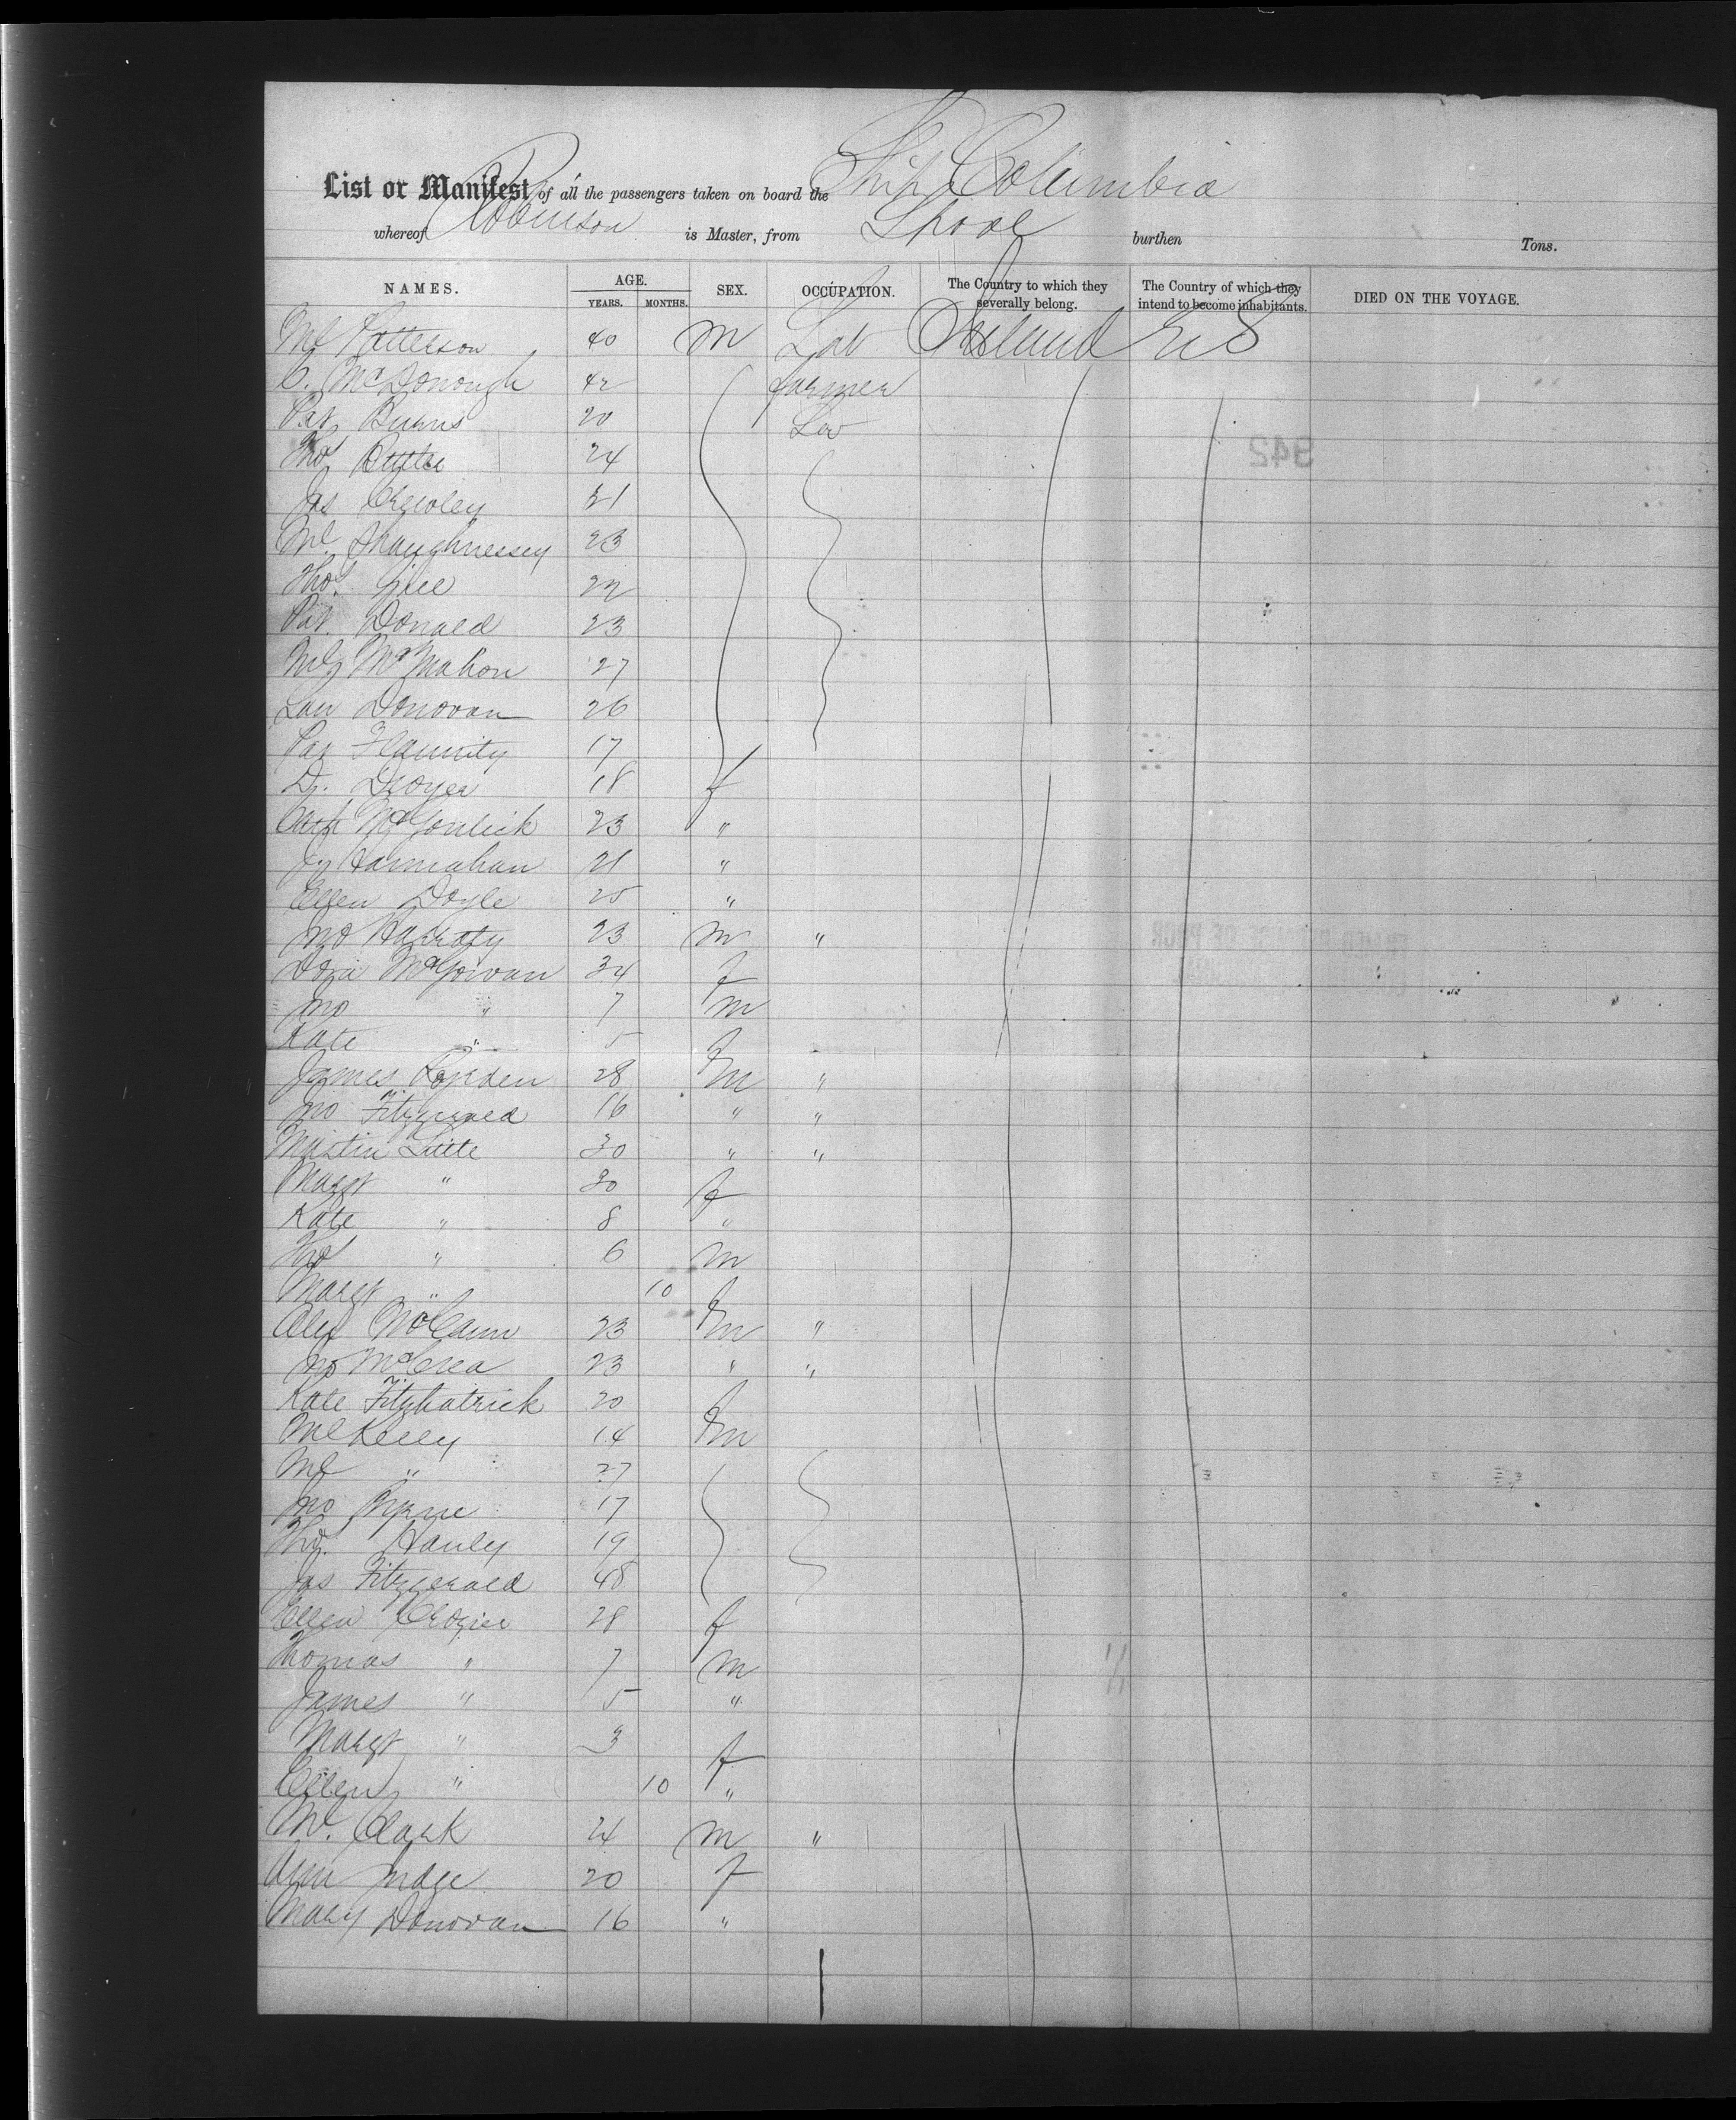 Ship Columbia
List or Manifest of all the passengers taken on board the
whereof Robinson is Master, from Lpool burthen Tons.
NAMES. AGE. SEX. OCCUPATION. The Country to which they severally belong. The Country of which they intend to become inhabitants. DIED ON THE VOYAGE.
YEARS. MONTHS.
Ml Patterson 40 m Lab Ireland U S
C. McDonough 42 farmer
Pat Burns 20 Lab
Thos 24
Jas Crowley 21
Ml Shaughnessey 23
Thos Gill 22
Pat Donald 23
Ml McMahon 27
Lau Donovan 26
Pat 17
D. Dwyer 18 f
Cath McGorlick 23 "
Hannahan 21 "
Ellen Doyle 25 "
Jno 23 m "
Dora McGowan 34 f
Jno " 7 m
Kate " 5 f
James 28 m "
Jno Fitzgerald 16 " "
Martin Little 30 " "
Margt " 30 f
Kate " 8 "
Thos " 6 m
Margt " 10 f
Alex McCann 23 m "
Jno McCrea 23 " "
Kate Fitzpatrick 20 f
Ml Kelly 14 m
Ml " 27
Jno Byrne 17
Thos. Hanley 19
Jas Fitzgerald 48
Ellen Crozier 28 f
Thomas " 7 m
James " 5 "
Margt " 3 f
Ellen " 10 "
Ml. Clark 24 m "
Ann Judge 20 f
Mary Donovan 16 "